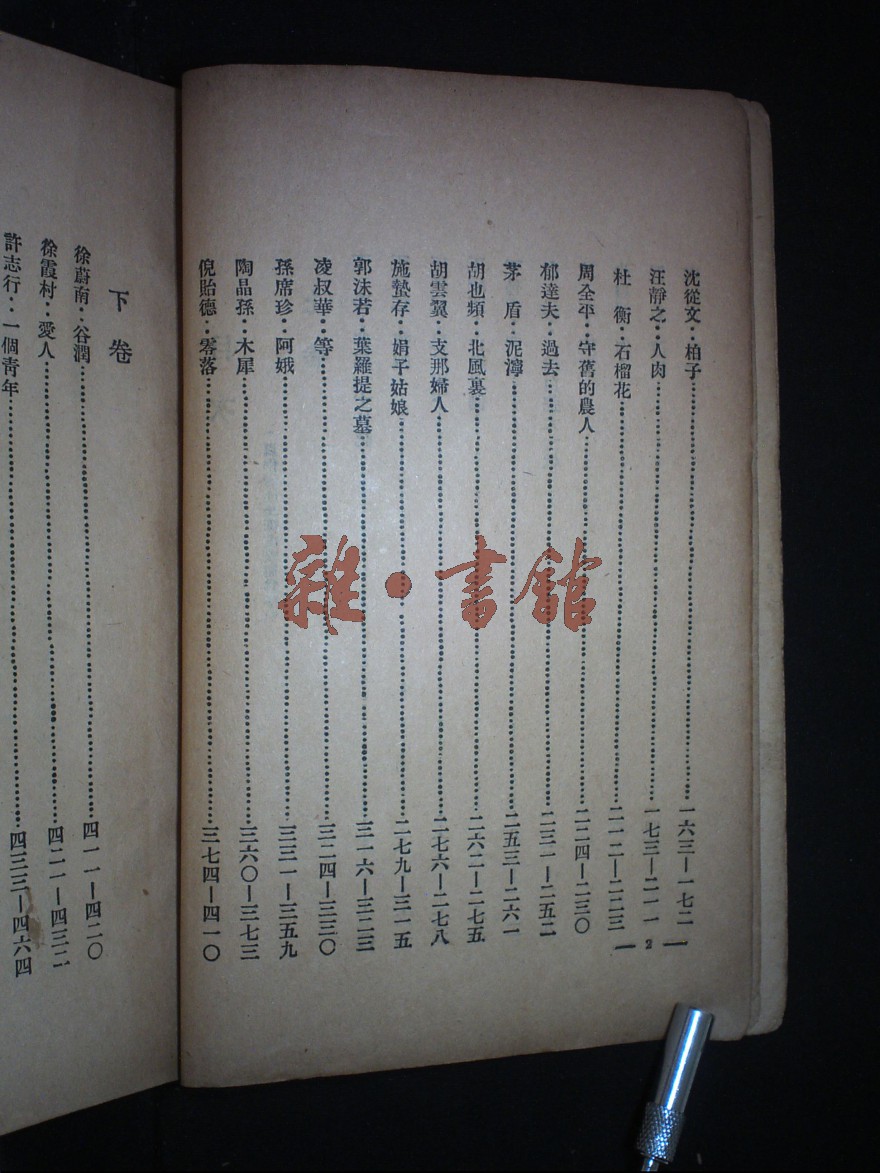 沈從文··柏子……一六三—一七二
汪靜之··人肉……一七三—二一一
杜　衡··石榴花……二一二—二二三
周全平··守舊的農人……二二四—二三〇
郁達夫··過去……二三一—二五二
茅　盾··泥濘……二五三—二六一
胡也頻··北風裏……二六二—二七五
胡雲翼··支那婦人……二七六—二七八
施蟄存··娟子姑娘……二七九—三一五
郭沫若··葉羅提之墓……三一六—三二三
凌叔華··等……三二四—三三〇
孫席珍··阿娥……三三一—三五九
陶晶孫··木犀……三六〇—三七三
倪貽德··零落……三七四—四一〇
— 2 —
下卷
徐蔚南··谷潤……四一一—四二〇
徐霞村··愛人……四二一—四三二
許志行··一個靑年……四三三—四六四
雜·書館